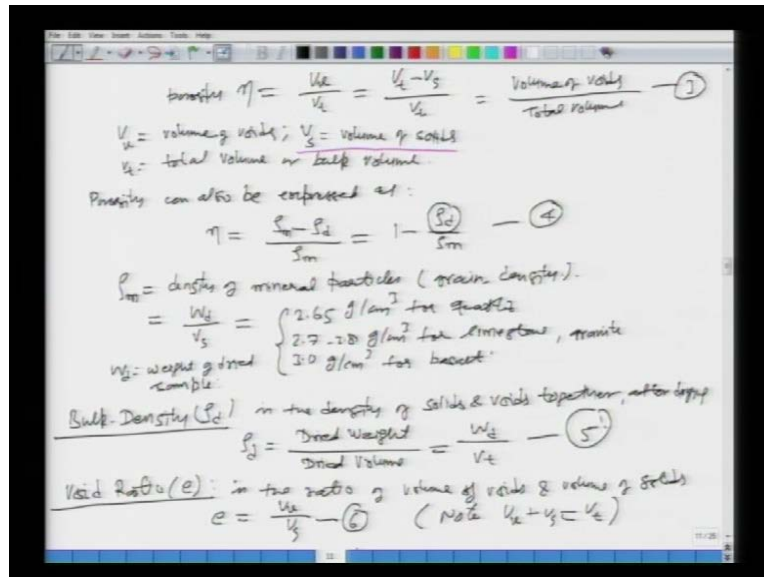 File Edit View Insert Actions Tools Help
porosity η = Vv/Vt = (Vt-Vs)/Vt = Volume of voids/Total volume — 3
Vv = volume of voids; Vs = volume of solids
Vt = total volume or bulk volume.
Porosity can also be expressed as:
η = (ρm-ρd)/ρm = 1- ρd/ρm — 4
ρm = density of mineral particles (grain density).
= Wd/Vs = { 2.65 g/cm³ for quartz
2.7-2.8 g/cm³ for limestone, granite
3.0 g/cm³ for basalt.
Wd = weight of dried sample.
Bulk-Density (ρd) is the density of solids & voids together, after drying
ρd = Dried Weight/Dried Volume = Wd/Vt — 5
Void Ratio (e): is the ratio of volume of voids & volume of solids
e = Vv/Vs — 6 (Note Vv+Vs=Vt)